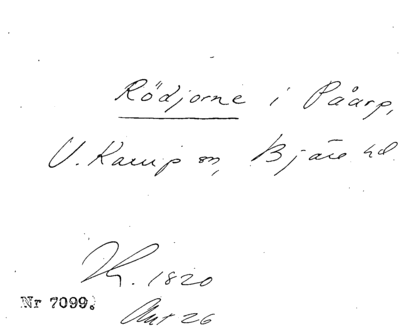 Rödjorne i Påarp,
V. Karup sn, Bjäre hd
1820
Nr 7099.
Akt 26